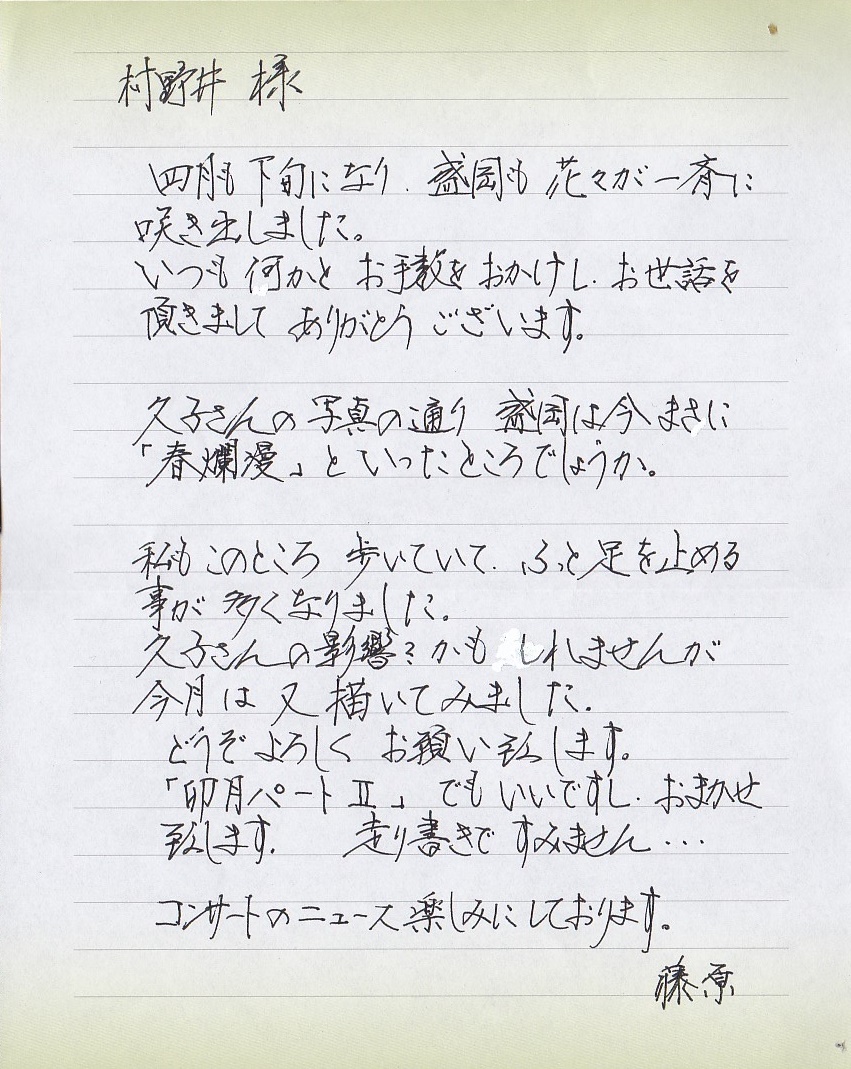 村野井 様
四月も下旬になり、盛岡も 花々が一斉に
咲き出しました。
いつも 何かと お手数を おかけし、お世話を
頂きまして ありがとう ございます。
久子さんの 写真の通り 盛岡は今 まさに
「春爛漫」といったところでしょうか。
私も このところ 歩いていて、ふと 足を止める
事が 多くなりました。
久子さんの影響?かも しれませんが
今月は 又 描いてみました。
どうぞ よろしく お願い致します。
「卯月パートⅡ」でも いいですし、おまかせ
致します。 走り書きで すみません・・・
コンサートのニュース楽しみにしております。
藤原